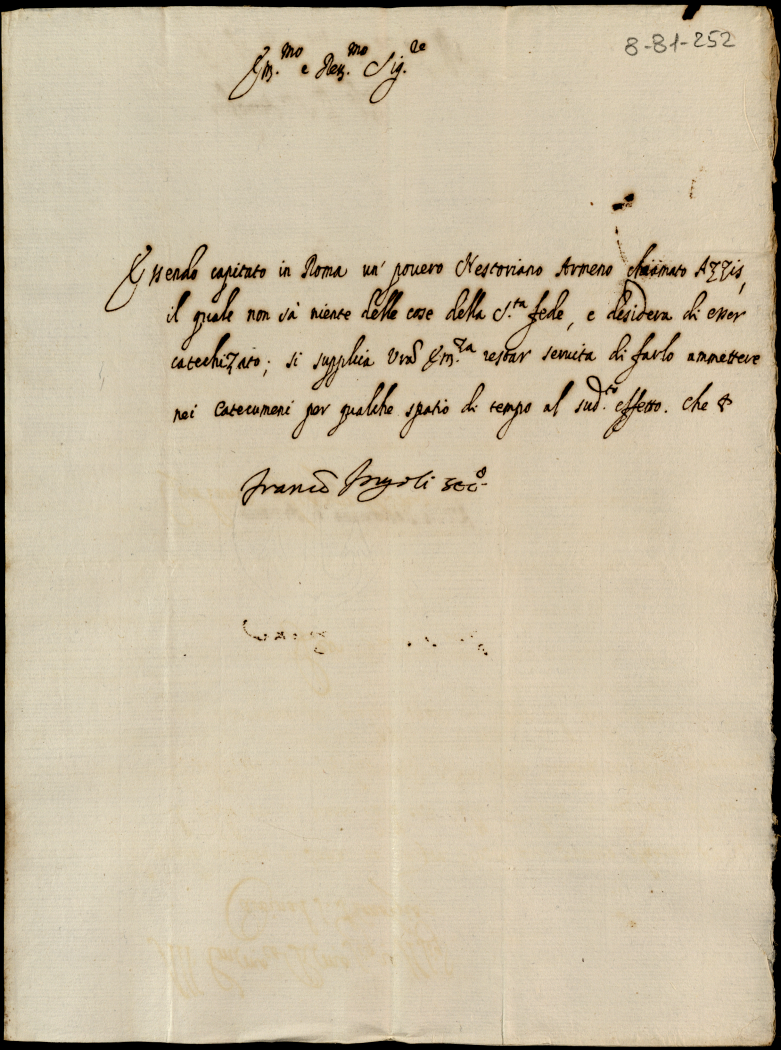 8-81-252
Em.mo e Rev.mo Sig.re
Essendo capitato in Roma un' povero Nestoriano Armeno chiamato Azzis,
il quale non sà niente delle cose della S.ta fede, e desidera di esser
catechizato; si supplica Vrã Em.za restar servita di farlo ammettere
nei Catecumeni per qualche spatio di tempo al sud.to effetto. Che &
Francõ Ingoli sec.o